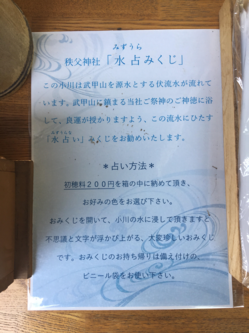 みずうら
秩父神社「水占みくじ」
この小川は武甲山を源水とする伏流水が流れて
います。武甲山に鎮まる当社ご祭神のご神徳に浴
して、良運が授かりますよう、この流水にひたす
みずうらな
「水占い」みくじをお勧めいたします。
＊占い方法＊
初穂料２００円を箱の中に納めて頂き、
お好みの色をお選び下さい。
おみくじを開いて、小川の水に浸して頂きますと
不思議と文字が浮かび上がる、大変珍しいおみくじ
です。おみくじのお持ち帰りは備え付けの、
ビニール袋をお使い下さい。